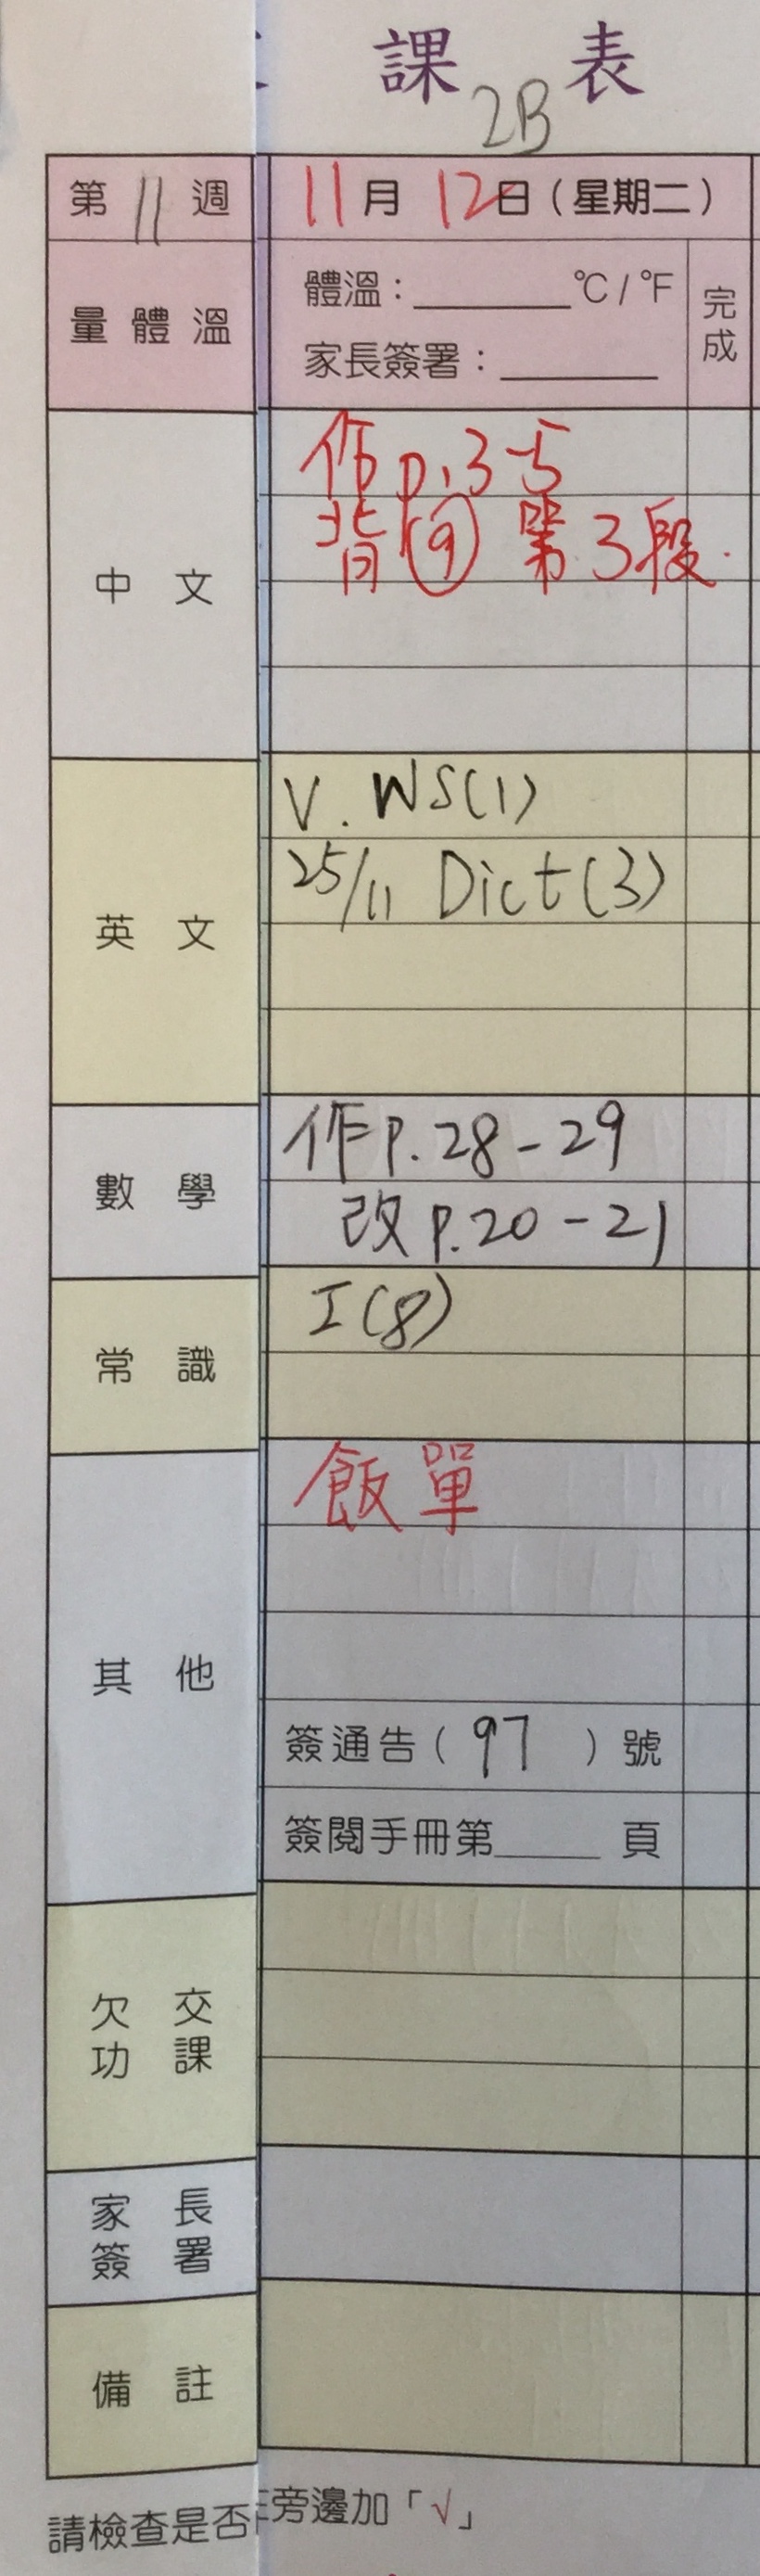 課 表
2B
第 11 週
11月 12日（星期二）
量 體 溫
體溫：______°C / °F
家長簽署：______
完成
中 文
作 p.3-5
背(9) 第3段.
英 文
V. WS(1)
25/11 Dict(3)
數 學
作P. 28-29
改P.20-21
常 識
I(8)
其 他
飯單
簽通告（97）號
簽閱手冊第______頁
欠 交
功 課
家 長
簽 署
備 註
請檢查是否
旁邊加「√」